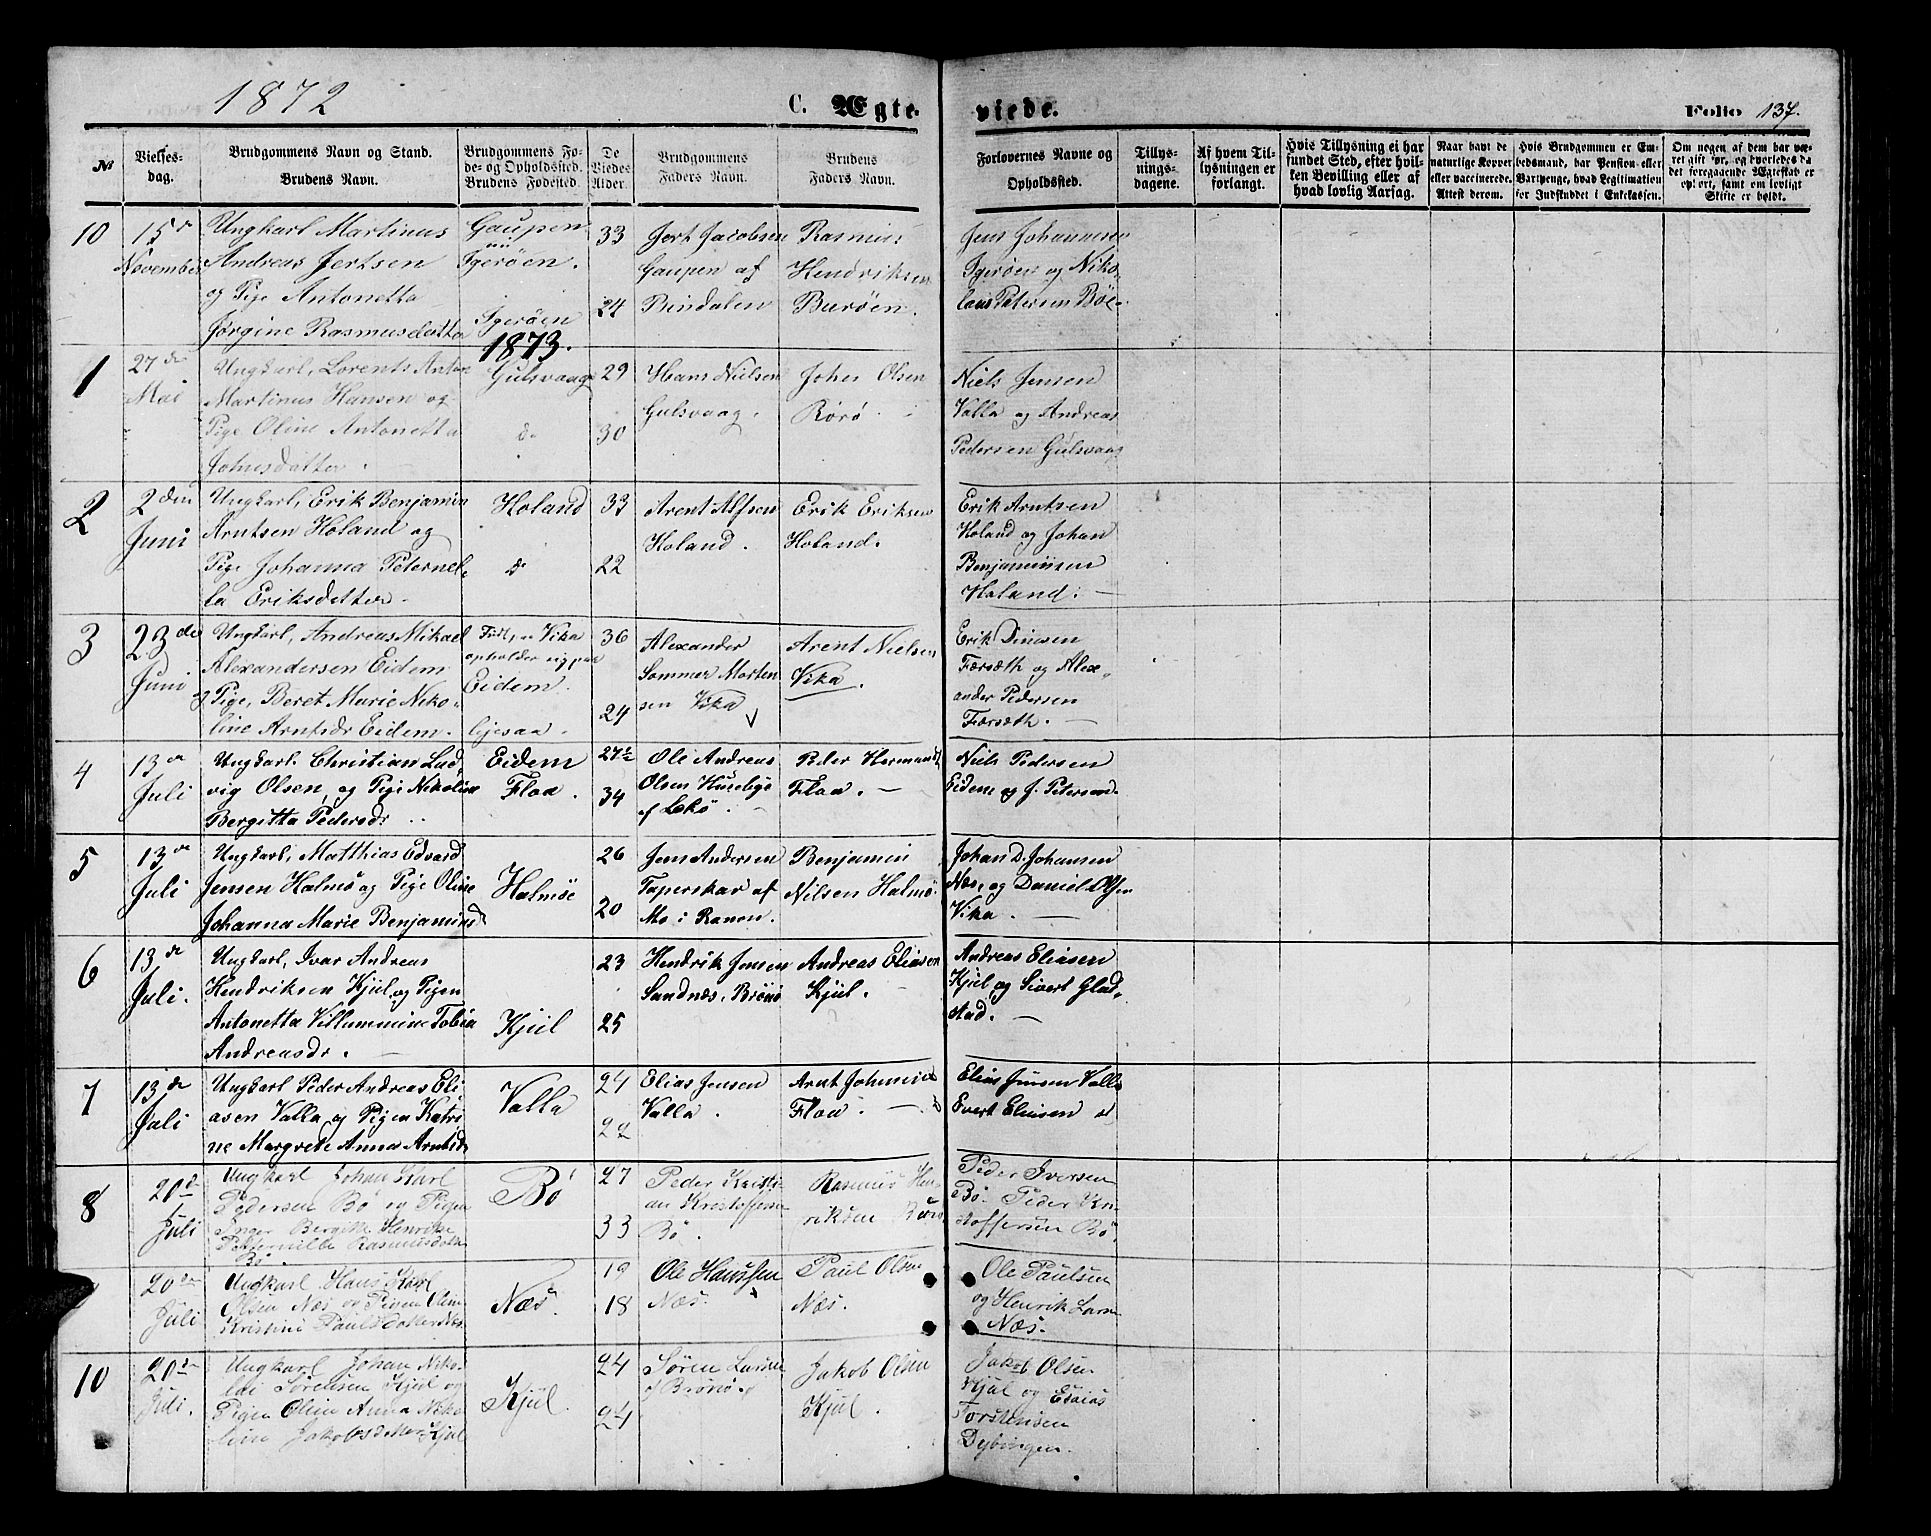 1872
C. Ægte-
viede.
Folio 137.
№
Vielses-
dag.
Brudgommens Navn og Stand.
Brudens Navn.
Brudgommens Fø-
de- og Opholdssted.
Brudens Fødested.
De
Viedes
Alder.
Brudgommens
Faders Navn.
Brudens
Faders Navn.
Forlovernes Navne og
Opholdssted.
Tillys-
nings-
dagene.
Af hvem Til-
lysningen er
forlangt.
Hvis Tillysning ei har
fundet Sted, efter hvil-
ken Bevilling eller af
hvad lovlig Aarsag.
Naar havt de
naturlige Kopper
eller vaccinerede.
Attest derom.
Hvis Brudgommen er Em-
bedsmand, har Pension eller
Vartpenge, hvad Legitimation
for Indskuddet i Enkekassen.
Om nogen af dem har væ-
ret gift før, og hvorledes da
det foregaaende Ægteskab er
ophørt, samt om lovligt
Skifte er holdt.
10
15de
November
Ungkarl Martinus
Andreas Jertsen
og Pige Antonetta
Jørgine Rasmusdatter
Gaupen
Igerøen.
Igerøen
33
24
Jert Jacobsen
Gaupen af
Bindalen
Rasmus
Hendriksen
Burøen.
Jens Johannesen
Igerøen og Niko-
laus Petersen Bøe
1873.
1
27de
Mai
Ungkarl, Lorents Anton
Martinus Hansen og
Pige Oline Antonetta
Johnsdatter.
Gulsvaag
do
29
30
Hans Nielsen
Gulsvaag.
Johns Olsen
Rørø.
Niels Jensen
Valla og Andreas
Pedersen Gulsvaag
2
2den
Juni
Ungkarl, Erik Benjamin
Arntsen Holand og
Pige Johanna Peternel-
la Eriksdatter.
Holand
do
33
22
Arent Alfsen
Holand.
Erik Eriksen
Holand.
Erik Arntsen
Holand og Johan
Benjaminsen
Holand.
3
23de
Juni
Ungkarl, Andreas Mikael
Alexandersen Eidem
Pige, Beret Marie Niko-
line Arntsdr Eidem.
Født, Vika
opholder sig paa
Eidem.
ligesaa.
36
24
Alexander
Sommer Morten
sen Vika
Arent Nielsen
Vika.
Erik Dinesen
Færsæth og Alex-
ander Pedersen
Færsæth.
4
13de
Juli
Ungkarl. Christian Lud-
vig Olsen, og Pige Nikoline
Bergitta Pedersdr
Eidem
Floa.
27½
34
Ole Andreas
Olsen Huseby
af Lekø
Peder Hermands
Floa.
Niels Pedersen
Eidem og J. Petersen
5
13de
Juli
Ungkarl, Matthias Edvard
Jensen Halmø og Pige Oline
Johanna Marie Benjaminsd
Halmøe
26
20
Jens Andersen
Taperskar af
Mo i Ranen.
Benjamin
Nilsen Halmø.
Johan D. Johansen
Næs, og Daniel Olsen
Vika.
6
13de
Juli.
Ungkarl, Ivar Andreas
Hendriksen Kjul og Pigen
Antonetta Villummine Tobia
Andreasdr.
Kjul
23
25
Hendrik Jensen
Sandnæs, Brønø
Andreas Eliasen
Kjul.
Andreas Eliasen
Kjul og Sivert Glad-
stad.
7
13de
Juli
Ungkarl Peder Andreas Eli-
asen Valla og Pigen Katri-
ne Margrete Anna Arntsd.
Valla
24
22
Elias Jensen
Valla.
Arnt Johnsen
Floa.
Elias Jensen Valla
Evert Eliasen
8
20de
Juli
Ungkarl Johan Karl
Pedersen Bø og Pigen
Inger Bergitte Henrike
Petternille Rasmusdatter
Bø.
Bø
27
33
Peder Kristi-
an Kristoffersen
Bø.
Rasmus Hen-
riksen
Peder Iversen
Bø. Peder Kri-
stoffersen Bø.
20de
Juli
Ungkarl Hans Karl
Olsen Næs og Pigen Oline
Kristine Paulsdatter Næs
Næs.
19
18
Ole Hanssen
Næs.
Paul Olsen
Næs.
Ole Paulsen
og Henrik Larsen
Næs.
10
20de
Juli.
Ungkarl Johan Niko-
lai Sørensen Kjul og
Pigen Oline Anna Niko-
line Jakobsdatter Kjul
Kjul.
24
24
Søren Larsen
af Brønø.
Jakob Olsen
Kjul.
Jakob Olsen
Kjul og Esaias
Torstensen
Dybingen.